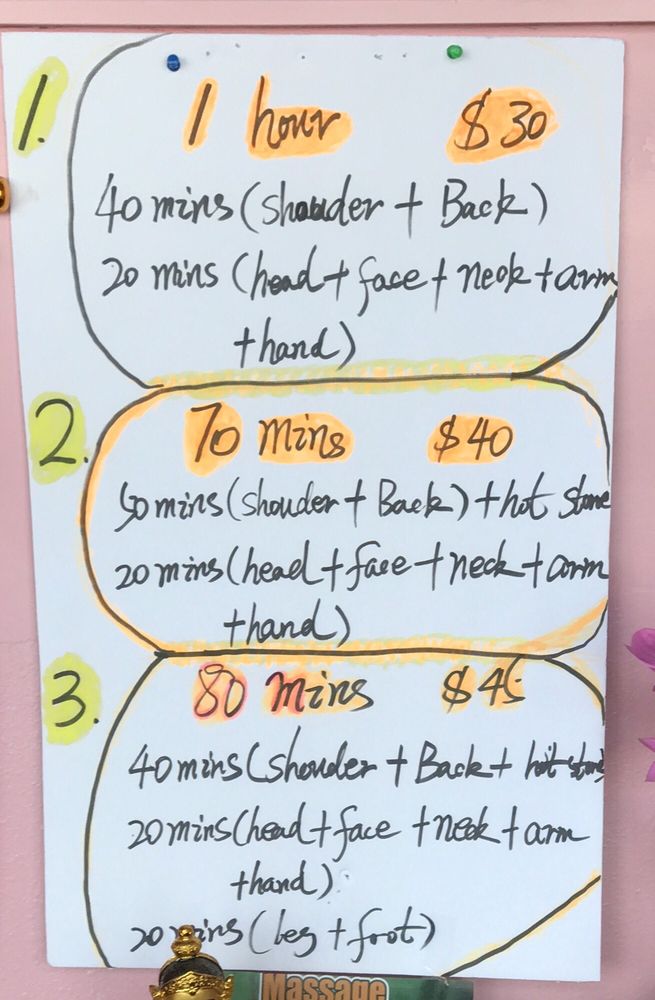 1. 1 hour $30
40 mins (shouder + Back)
20 mins (head + face + neck + arm
+ hand)
2. 70 mins $40
50 mins (shouder + Back) + hot stone
20 mins (head + face + neck + arm
+ hand)
3. 80 mins $45
40 mins (shouder + Back + hot stone
20 mins (head + face + neck + arm
+ hand)
20 mins (leg + foot)
Massage